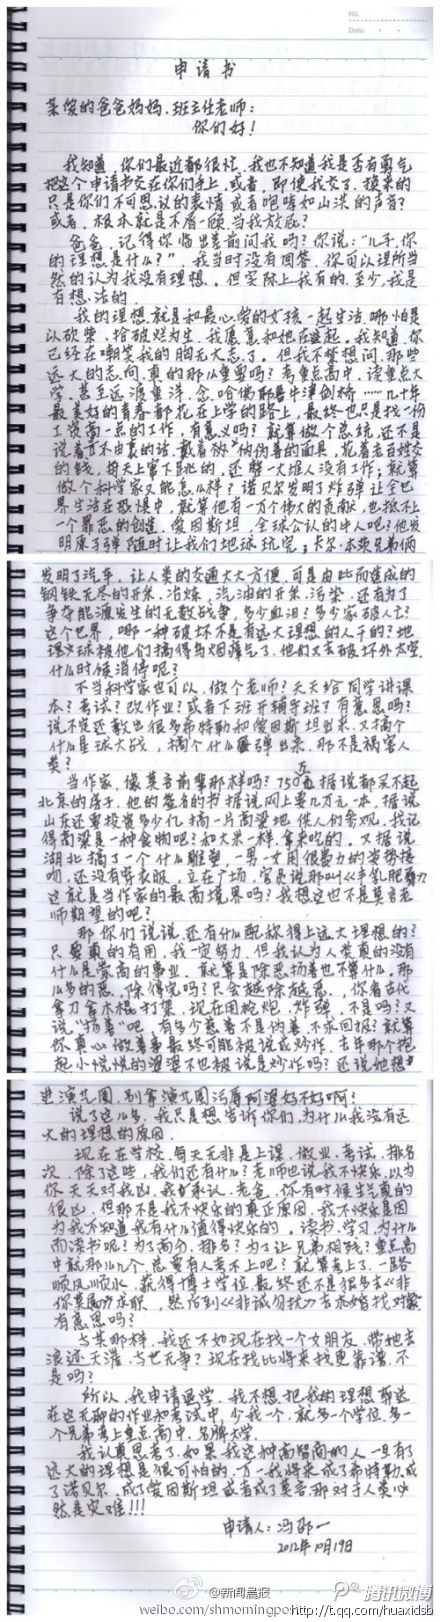 No.
Date
申请书
亲爱的爸爸妈妈、班主任老师:
你们好!
我知道,你们最近都很忙,我也不知道我是否有勇气
把这个申请书交在你们手上,或者,即使我交了,换来的
只是你们不可思议的表情或者咆哮如山洪的声音?
或者,根本就是不屑一顾,当我放屁?
爸爸,记得你临出差前问我吗?你说:“儿子,你
的理想是什么?”,我当时没有回答,你可以理所当
然的认为我没有理想。但实际上我有的,至少,我是
有想法的。
我的理想就是和最心爱的女孩一起生活,哪怕是
以砍柴、拾破烂为生,我愿意和她在一起。我知道,你
已经在嘲笑我的胸无大志了。但我不禁想问,那些
远大的志向,真的那么重要吗?考重点高中,读重点大
学,甚至远渡重洋,念哈佛耶鲁牛津剑桥……几十年
最美好的青春都花在上学的路上,最终也只是找一份
工资高一点的工作,有意义吗?就算做个总统,还不是
说着言不由衷的话,戴着伪善的面具,花着老百姓交
的钱,每天上窜下跳的,还整一大堆人没有工作;就算
做个科学家又能怎么样?诺贝尔发明了炸弹让全世
界生活在恐惧中,就算他有一万个伟大的贡献,也抵不上
一个罪恶的创造。爱因斯坦,全球公认的牛人吧?他发
明原子弹随时让我们地球玩完;卡尔·本茨兄弟俩
发明了汽车,让人类的交通大大方便,可是由此而造成的
钢铁无尽的开采、冶炼,汽油的开采、污染,还有为了
争夺能源发生的无数战争,多少血泪?多少家破人亡?
这个世界,哪一种破坏不是有远大理想的人干的?地
球被他们搞得乌烟瘴气了,他们又去破坏外太空,
什么时候消停呢?
不当科学家也可以,做个老师?天天给同学讲课
本?考试?改作业?或者下班开辅导班?有意思吗?
说不定还教出很多希特勒和爱因斯坦出来,又搞个
什么星球大战,搞个什么弹出来,那不是祸害人
类?
当作家,像莫言前辈那样吗?750万,据说都买不起
北京的房子,他的签名的书据说网上要几万元一本,据说
山东还要投资多少亿搞一片高粱地,供人们参观,我记
得高粱是一种食物吧?和大米一样,拿来吃的。又据说
湖北搞了一个什么雕塑,一男一女用很费力的姿势接
吻,还没有穿衣服,立在广场,官员说那叫《丰乳肥臀》,
这就是当作家的最高境界吗?我想这也不是莫言老
师期望的吧?
那你们说说,还有什么配称得上远大理想的?
只要真的有用,我一定努力,但我认为人类真的没有
什么是崇高的事业。就算是除恶扬善也不算什么,那
么多的恶,除得完吗?只会越除越恶,你看古代
拿刀拿木棍打架,现在用枪炮、炸弹,不是吗?又
说“扬善”吧,有多少慈善不是伪善,不求回报?就算
你真心做善事最终可能被说成炒作。去年那个抱
起小悦悦的婆婆不也被说是炒作吗?还说她想
进演艺圈,别拿演艺圈污辱阿婆好不好啊?
说了这么多,我只是想告诉你们,为什么我没有远
大的理想的原因。
现在在学校,每天无非是上课、做业、考试、排名
次,除了这些,我们还有什么?老师也说我不快乐,以为
你天天对我凶,我承认,老爸,你有时候生气真的
很凶,但那不是我不快乐的真正原因,我不快乐是因
为我不知道我有什么值得快乐的。读书、学习,为什么
而读书呢?为了高分、排名?为了让兄弟相残?重点高
中就那么几个,总要有人考不上吧?就算考上了,一路
顺风顺水,获得博士学位,最终还不是很多去《非
你莫属》求职,然后到《非诚勿扰》去求婚找对象?
有意思吗?
与其那样,我还不如现在找一个女朋友,带她去
浪迹天涯,与世无争?现在找比将来找更靠谱,不
是吗?
所以,我申请退学。我不想把我的理想葬送
在这无聊的作业和考试中,少我一个,就多一个学位,多一
个兄弟考上重点高中、名牌大学。
我认真思考了,如果我这种高智商的人一旦有了
远大的理想是很可怕的,万一我将来成了希特勒,成
了诺贝尔,成了爱因斯坦或者成了莫言,那对于人类必
然是灾难!!!
申请人:冯邵一
2012年10月19日
@新闻晨报
weibo.com/shmorningpost
腾讯微博
http://t.qq.com/huaxidsb